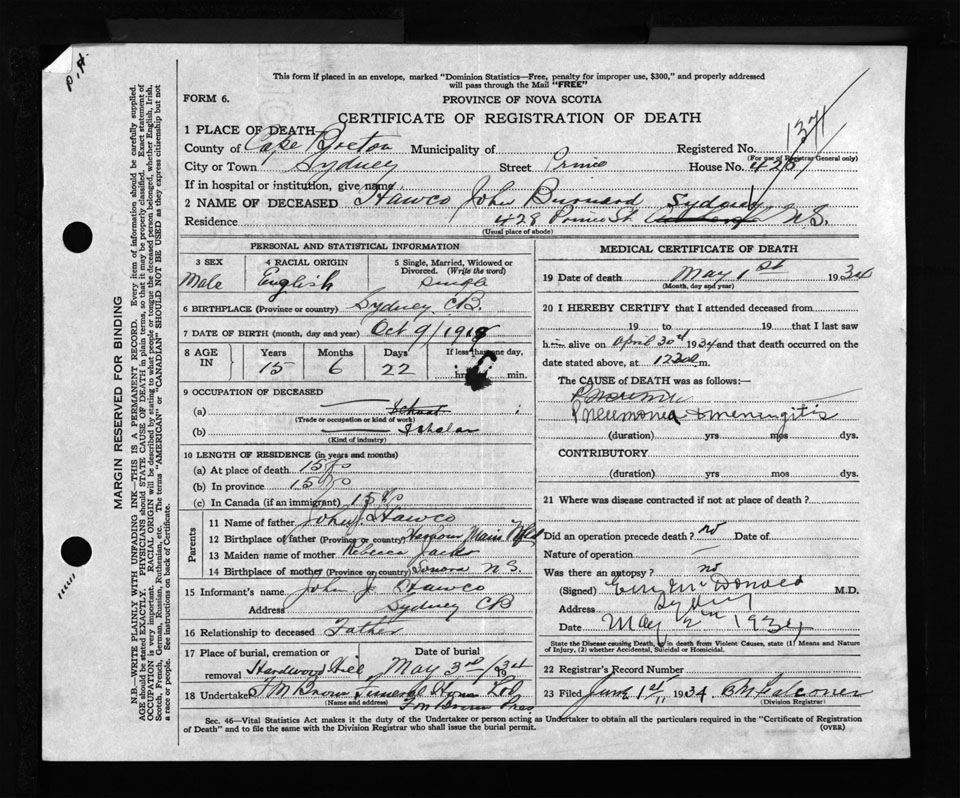 P.H.
This form if placed in an envelope, marked "Dominion Statistics—Free, penalty for improper use, $300," and properly addressed
will pass through the Mail "FREE"
FORM 6.
PROVINCE OF NOVA SCOTIA
CERTIFICATE OF REGISTRATION OF DEATH
1 PLACE OF DEATH
County of Cape Breton Municipality of Registered No. 1371
(For use of Registrar General only)
City or Town Sydney Street Prince House No. 428
If in hospital or institution, give name
2 NAME OF DECEASED Hawco John Burnard
Residence 428 Prince St. Sydney N.S.
(Usual place of abode)
PERSONAL AND STATISTICAL INFORMATION
3 SEX 4 RACIAL ORIGIN 5 Single, Married, Widowed or Divorced. (Write the word)
Male English Single
6 BIRTHPLACE (Province or country) Sydney C.B.
7 DATE OF BIRTH (month, day and year) Oct 9/1918
8 AGE IN Years Months Days If less than one day,
15 6 22 hrs. min.
9 OCCUPATION OF DECEASED
(a) School
(Trade or occupation or kind of work)
(b) Scholar
(Kind of industry)
10 LENGTH OF RESIDENCE (in years and months)
(a) At place of death 15 yrs
(b) In province 15 yrs
(c) In Canada (if an immigrant) 15 yrs
Parents
11 Name of father John J. Hawco
12 Birthplace of father (Province or country) Harbour Main Nfld
13 Maiden name of mother Rebecca
14 Birthplace of mother (Province or country) N.S.
15 Informant's name John J. Hawco
Address Sydney CB
16 Relationship to deceased Father
17 Place of burial, cremation or removal Date of burial
Hardwood Hill May 3rd 1934
18 Undertaker T M Brown Funeral Home Ltd
(Name and address) Pres
MEDICAL CERTIFICATE OF DEATH
19 Date of death May 1st 1934
(Month, day and year)
20 I HEREBY CERTIFY that I attended deceased from
19 to 19 that I last saw
him alive on April 30th 1934 and that death occurred on
date stated above, at m.
The CAUSE OF DEATH was as follows:—
Pneumonia & meningitis
(duration) yrs mos dys.
CONTRIBUTORY
(duration) yrs mos dys.
21 Where was disease contracted if not at place of death?
Did an operation precede death? no Date of
Nature of operation —
Was there an autopsy? no
(Signed) McDonald M.D.
Address Sydney
Date May 2nd 1934
State the Disease causing Death, or in death from Violent Causes, state (1) Means and Nature
of Injury, (2) whether Accidental, Suicidal or Homicidal.
22 Registrar's Record Number
23 Filed June 1st 1934 Falconer
(Division Registrar)
Sec. 46—Vital Statistics Act makes it the duty of the Undertaker or person acting as Undertaker to obtain all the particulars required in the "Certificate of Registration
of Death" and to file the same with the Division Registrar who shall issue the burial permit. (OVER)
MARGIN RESERVED FOR BINDING
N.B.—WRITE PLAINLY WITH UNFADING INK—THIS IS A PERMANENT RECORD. Every item of information should be carefully supplied.
AGE should be stated EXACTLY. PHYSICIANS should STATE CAUSE OF DEATH in plain terms, so that it may be properly classified. Exact statement of
OCCUPATION is very important. RACIAL ORIGIN will be described by stating to what people or tongue the deceased person belonged, whether English, Irish,
Scotch, French, German, Russian, Ruthenian, etc. The terms "AMERICAN" or "CANADIAN" SHOULD NOT BE USED as they express citizenship but not
a race or people. See instructions on back of Certificate.